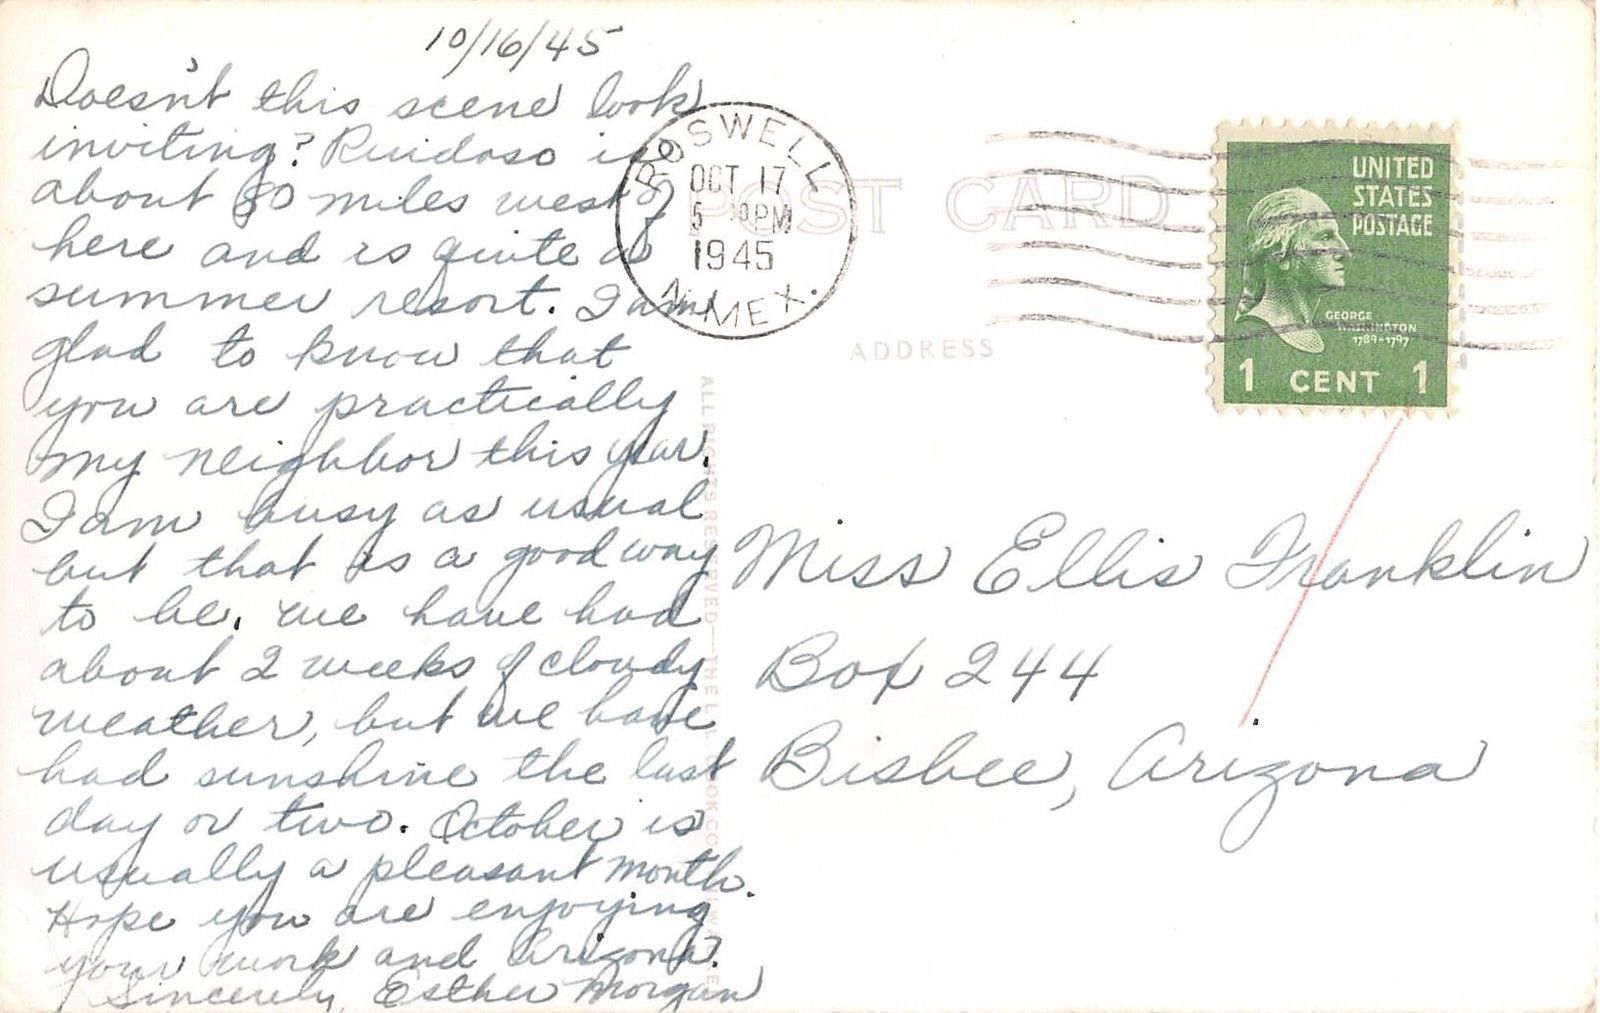 10/16/45
Doesn't this scene look
inviting? Ruidoso is
about 80 miles west of
here and is quite a
summer resort. I am
glad to know that
you are practically
my neighbor this year.
I am busy as usual
but that is a good way
to be. We have had
about 2 weeks of cloudy
weather, but we have
had sunshine the last
day or two. October is
usually a pleasant month.
Hope you are enjoying
your work and Arizona.
Sincerely, Esther Morgan
ROSWELL
OCT 17
5 PM
1945
N. MEX.
POST CARD
ADDRESS
UNITED
STATES
POSTAGE
GEORGE
WASHINGTON
1789-1797
1 CENT 1
ALL RIGHTS RESERVED—THE L. L. COOK CO.
Miss Ellis Franklin
Box 244
Bisbee, Arizona